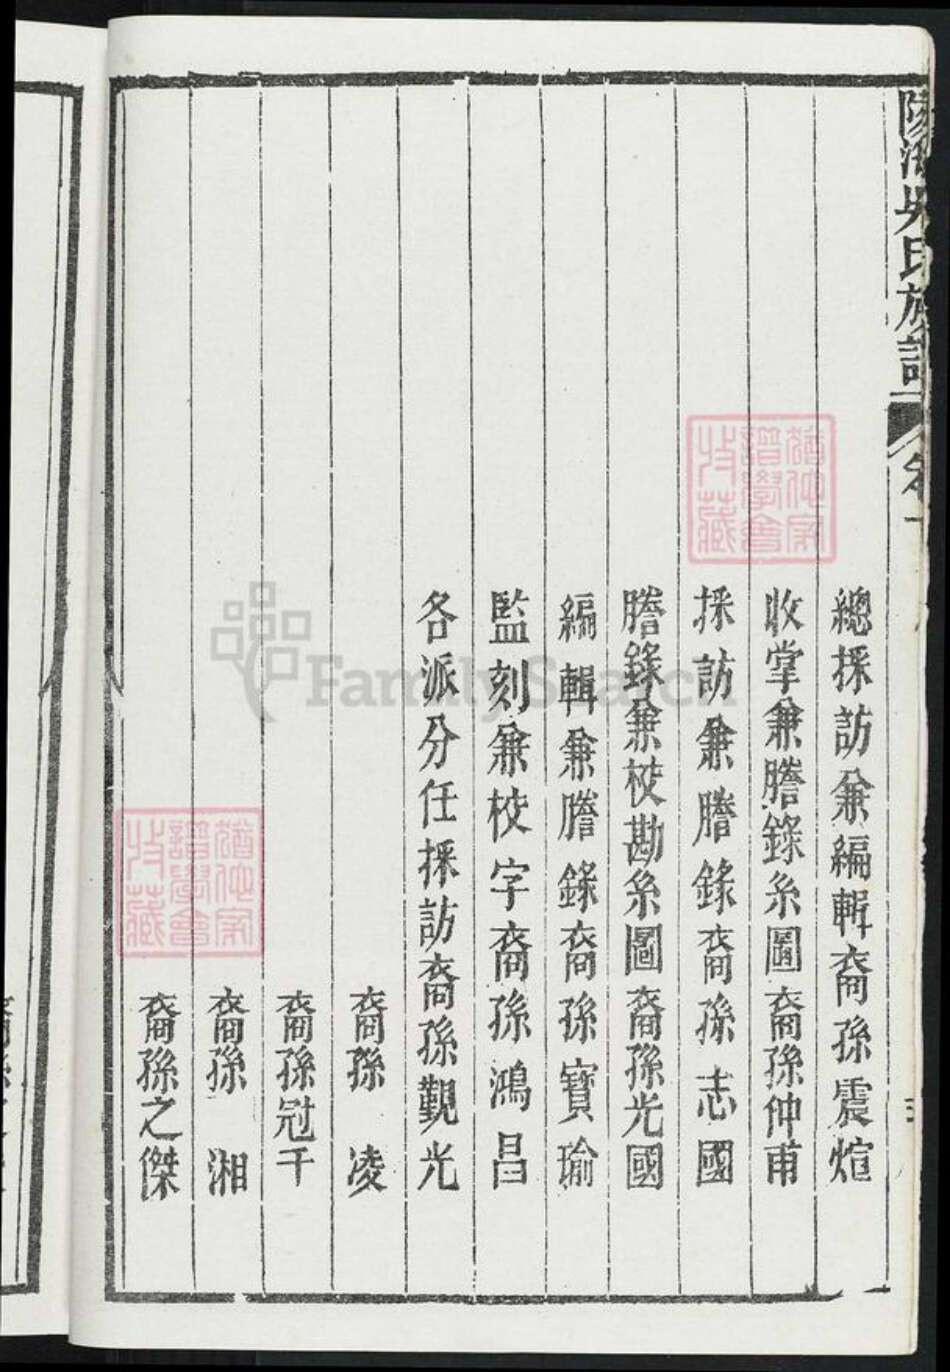 陵海吳氏族譜
卷一
三
總採訪兼編輯裔孫震煊
收掌兼謄錄系圖裔孫仲甫
採訪兼謄錄裔孫志國
謄錄兼校勘系圖裔孫光國
編輯兼謄錄裔孫寶瑜
監刻兼校字裔孫鴻昌
各派分任採訪裔孫觀光
裔孫 凌
裔孫冠千
裔孫 湘
裔孫之傑
FamilySearch
譜學會
收藏
譜學會
收藏